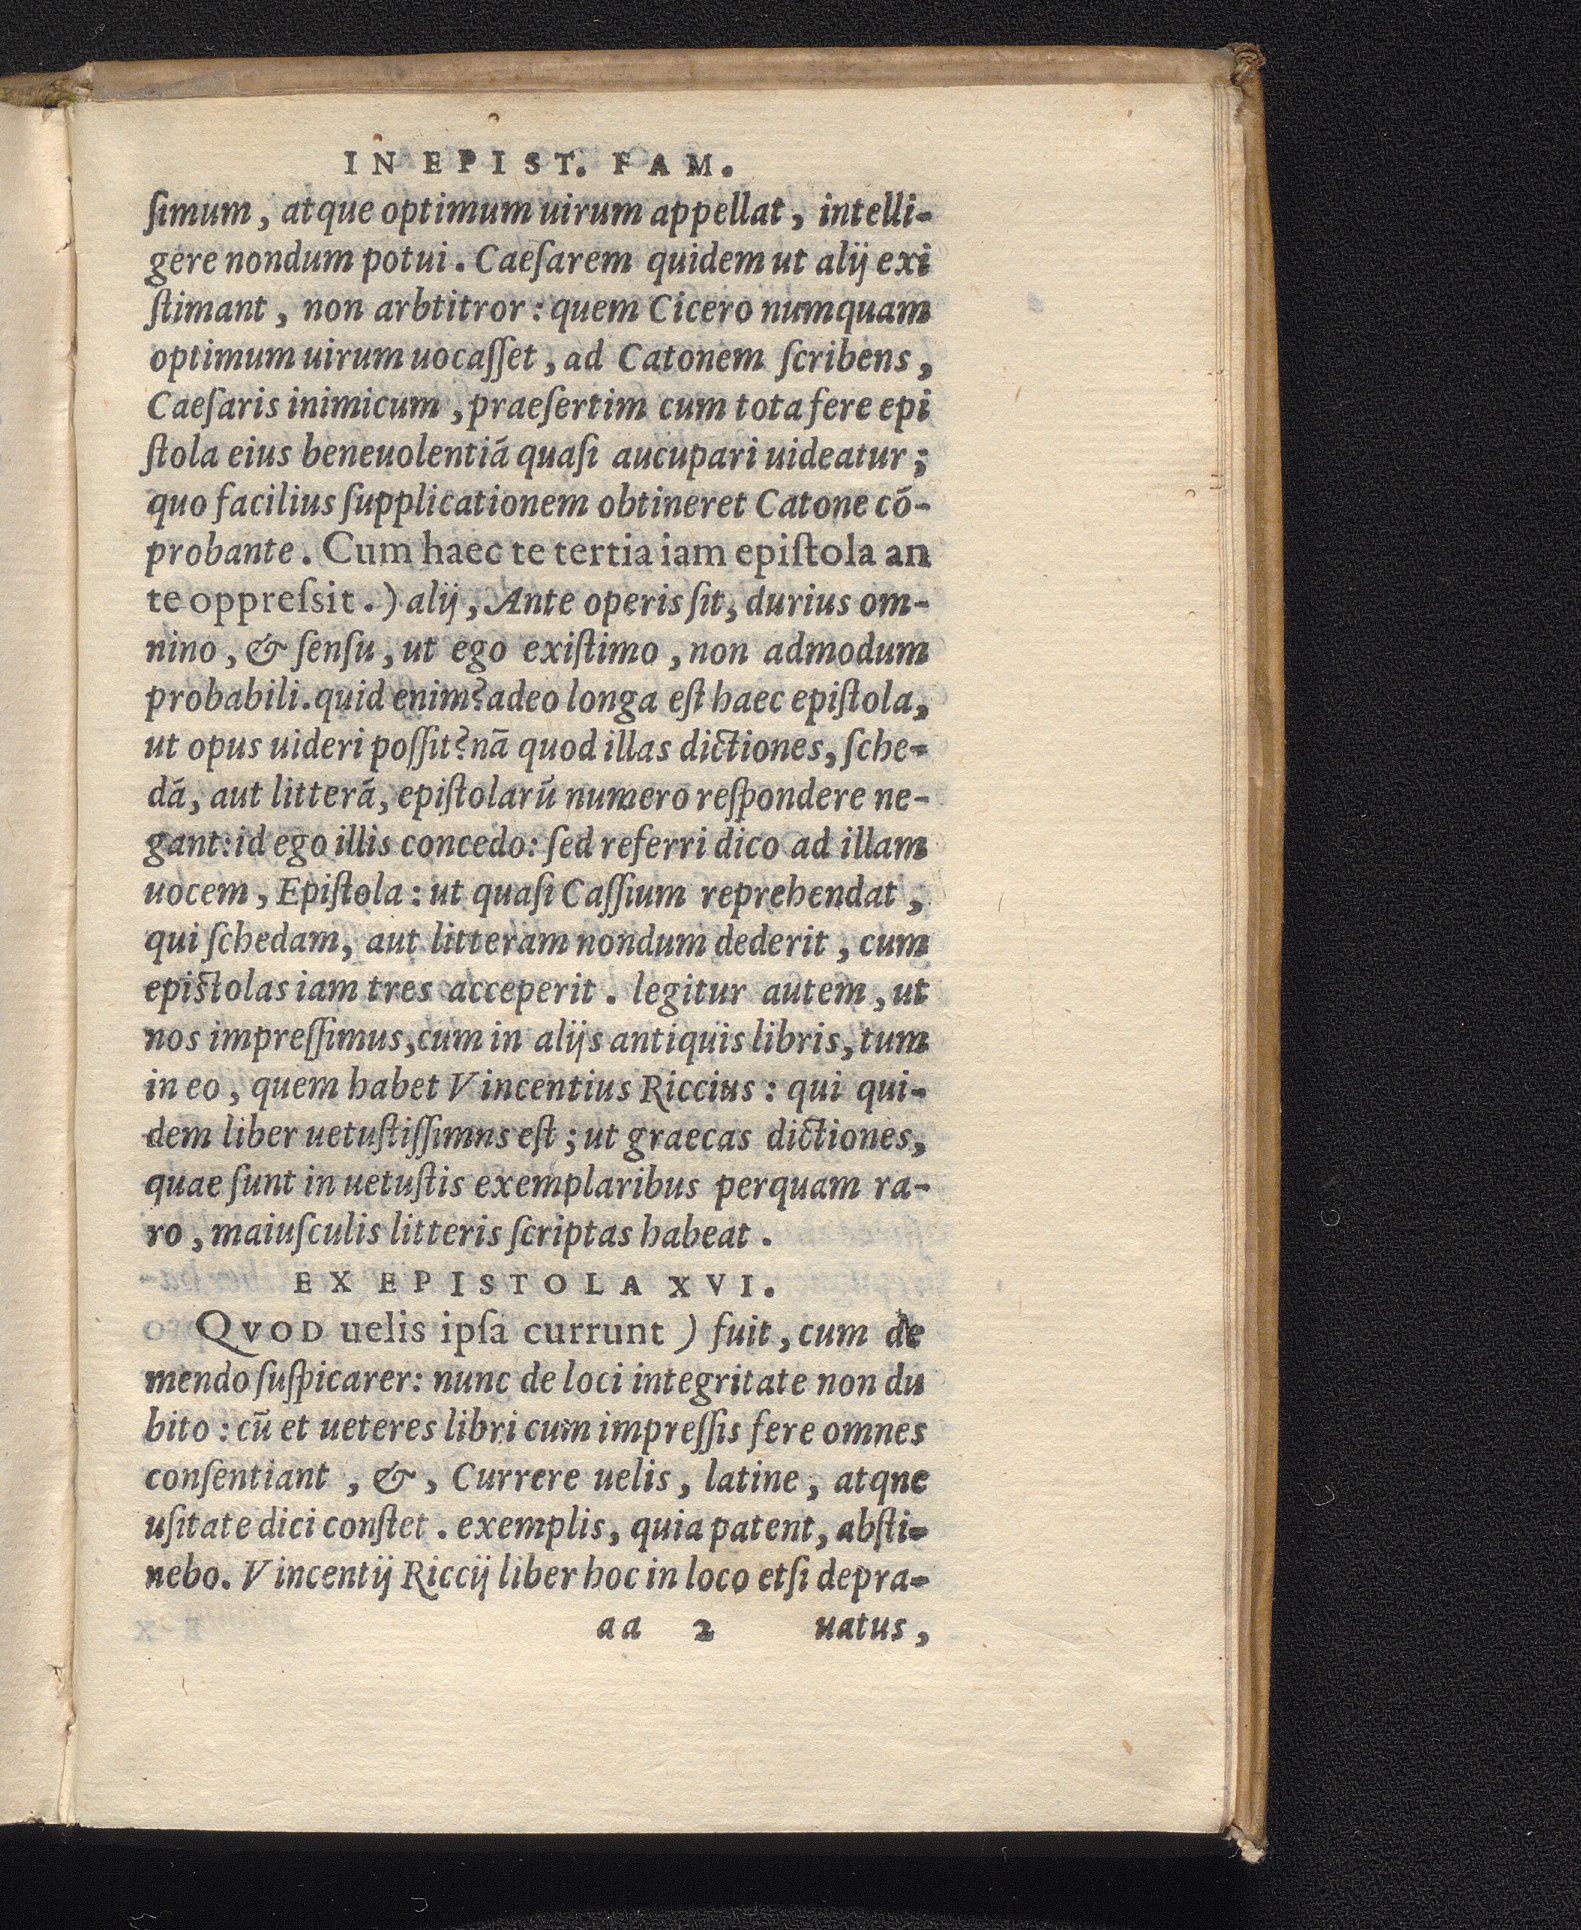 IN EPIST. FAM.
ſimum, atque optimum uirum appellat, intelli-
gere nondum potui. Caeſarem quidem ut alij exi
ſtimant, non arbtitror: quem Cicero numquam
optimum uirum uocaſſet, ad Catonem ſcribens,
Caeſaris inimicum, praeſertim cum tota fere epi
ſtola eius beneuolentiā quaſi aucupari uideatur;
quo facilius ſupplicationem obtineret Catone cō-
probante. Cum haec te tertia iam epiſtola an
te oppreſsit.) alij, Ante operis ſit, durius om-
nino, & ſenſu, ut ego exiſtimo, non admodum
probabili. quid enim? adeo longa eſt haec epiſtola,
ut opus uideri poſſit? nā quod illas dictiones, ſche-
dā, aut litterā, epiſtolarū numero reſpondere ne-
gant: id ego illis concedo: ſed referri dico ad illam
uocem, Epiſtola: ut quaſi Caſſium reprehendat,
qui ſchedam, aut litteram nondum dederit, cum
epistolas iam tres acceperit. legitur autem, ut
nos impreſſimus, cum in alijs antiquis libris, tum
in eo, quem habet Vincentius Riccius: qui qui-
dem liber uetuſtiſſimns eſt; ut graecas dictiones,
quae ſunt in uetuſtis exemplaribus perquam ra-
ro, maiuſculis litteris ſcriptas habeat.
EX EPISTOLA XVI.
QVOD uelis ipſa currunt) fuit, cum de
mendo ſuſpicarer: nunc de loci integritate non du
bito: cū et ueteres libri cum impreſſis fere omnes
conſentiant, &, Currere uelis, latine, atqne
uſitate dici conſtet. exemplis, quia patent, abſti-
nebo. Vincentij Riccij liber hoc in loco etſi depra-
aa 2 uatus,